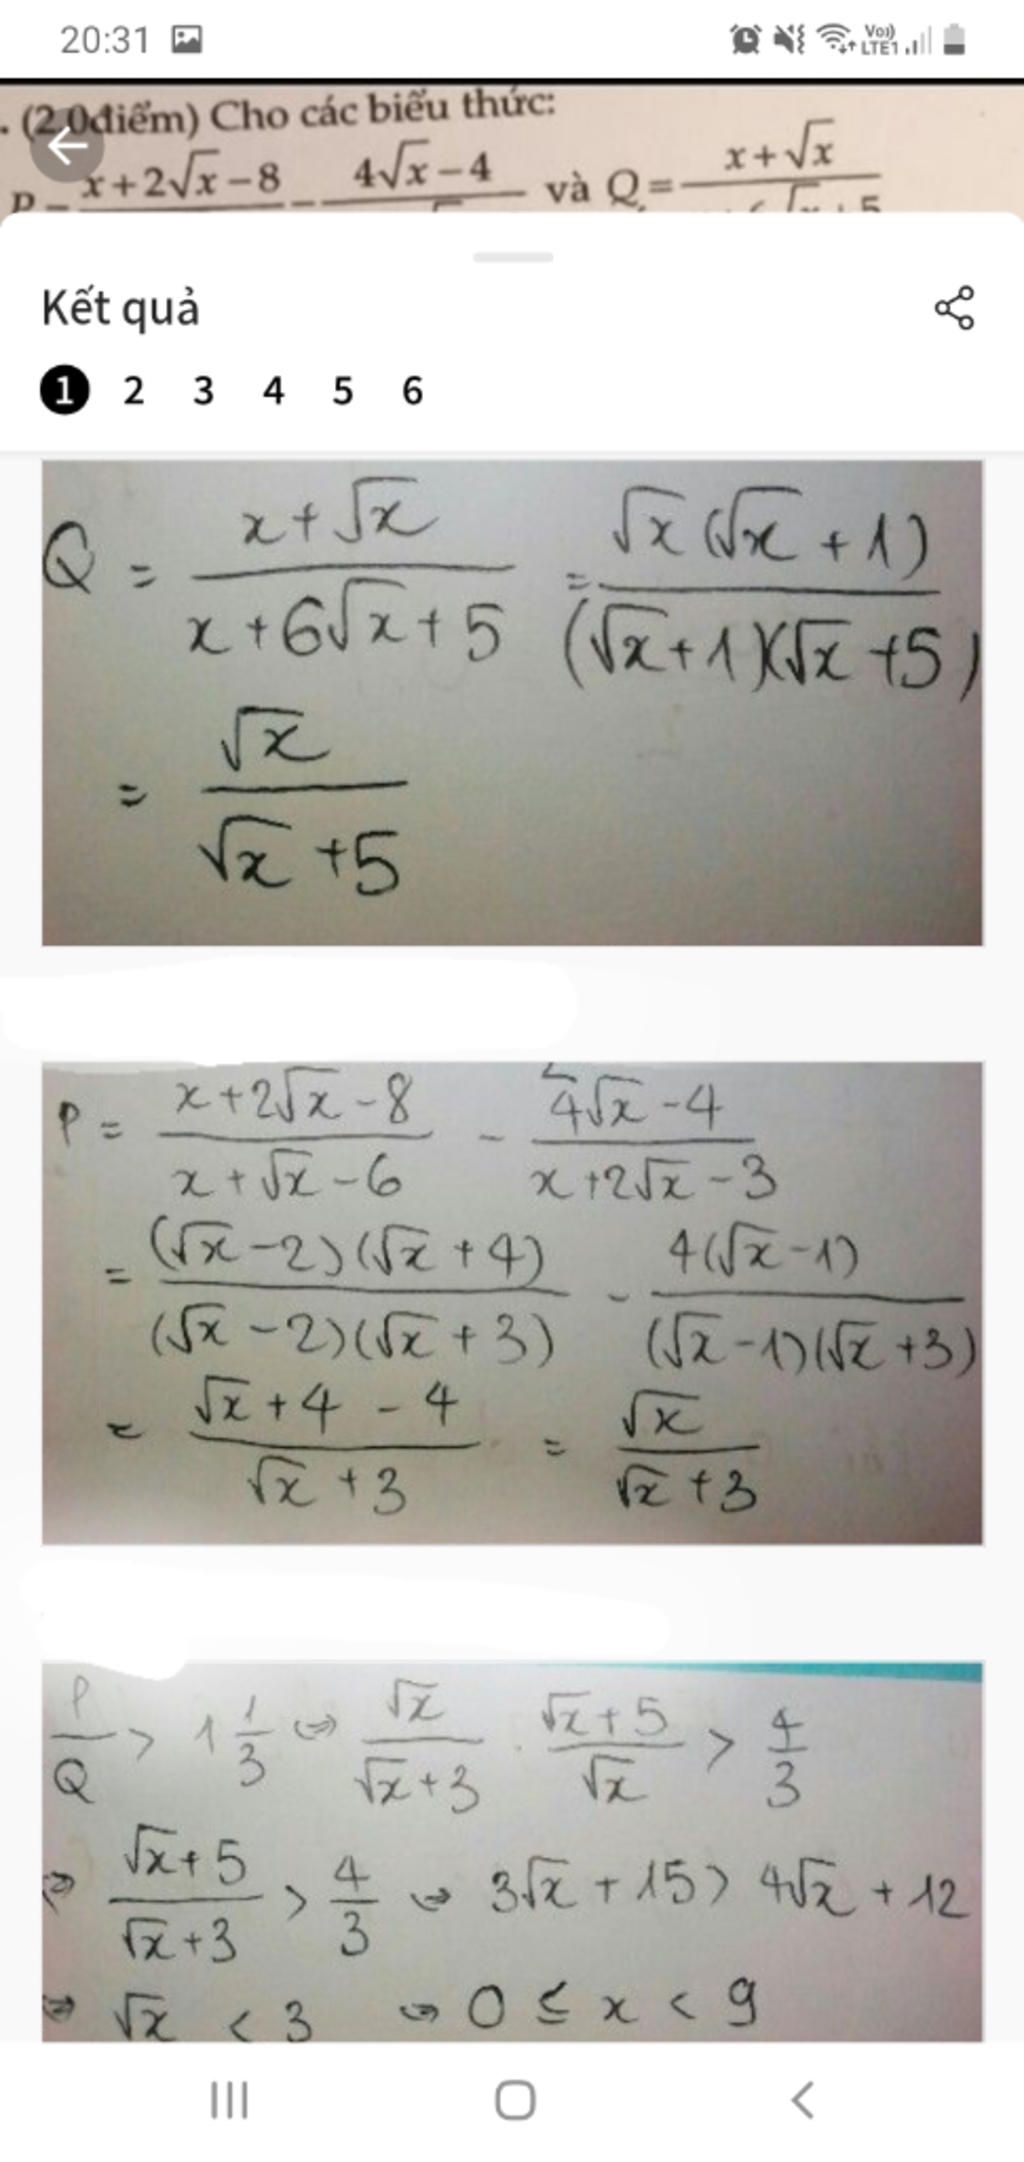 20:31
VoI)
LTE1
. (2.0điểm) Cho các biểu thức:
P = x+2√x−8 − 4√x−4 và Q = x+√x
Kết quả
1 2 3 4 5 6
Q = x+√x / x+6√x+5 = √x(√x+1) / (√x+1)(√x+5)
= √x / √x+5
P = x+2√x−8 / x+√x−6 − 4√x−4 / x+2√x−3
= (√x−2)(√x+4) / (√x−2)(√x+3) − 4(√x−1) / (√x−1)(√x+3)
= √x+4−4 / √x+3 = √x / √x+3
P/Q > 1 1/3 ⇔ √x / √x+3 . √x+5 / √x > 4/3
⇔ √x+5 / √x+3 > 4/3 ⇔ 3√x+15 > 4√x+12
⇔ √x < 3 ⇔ 0 ≤ x < 9